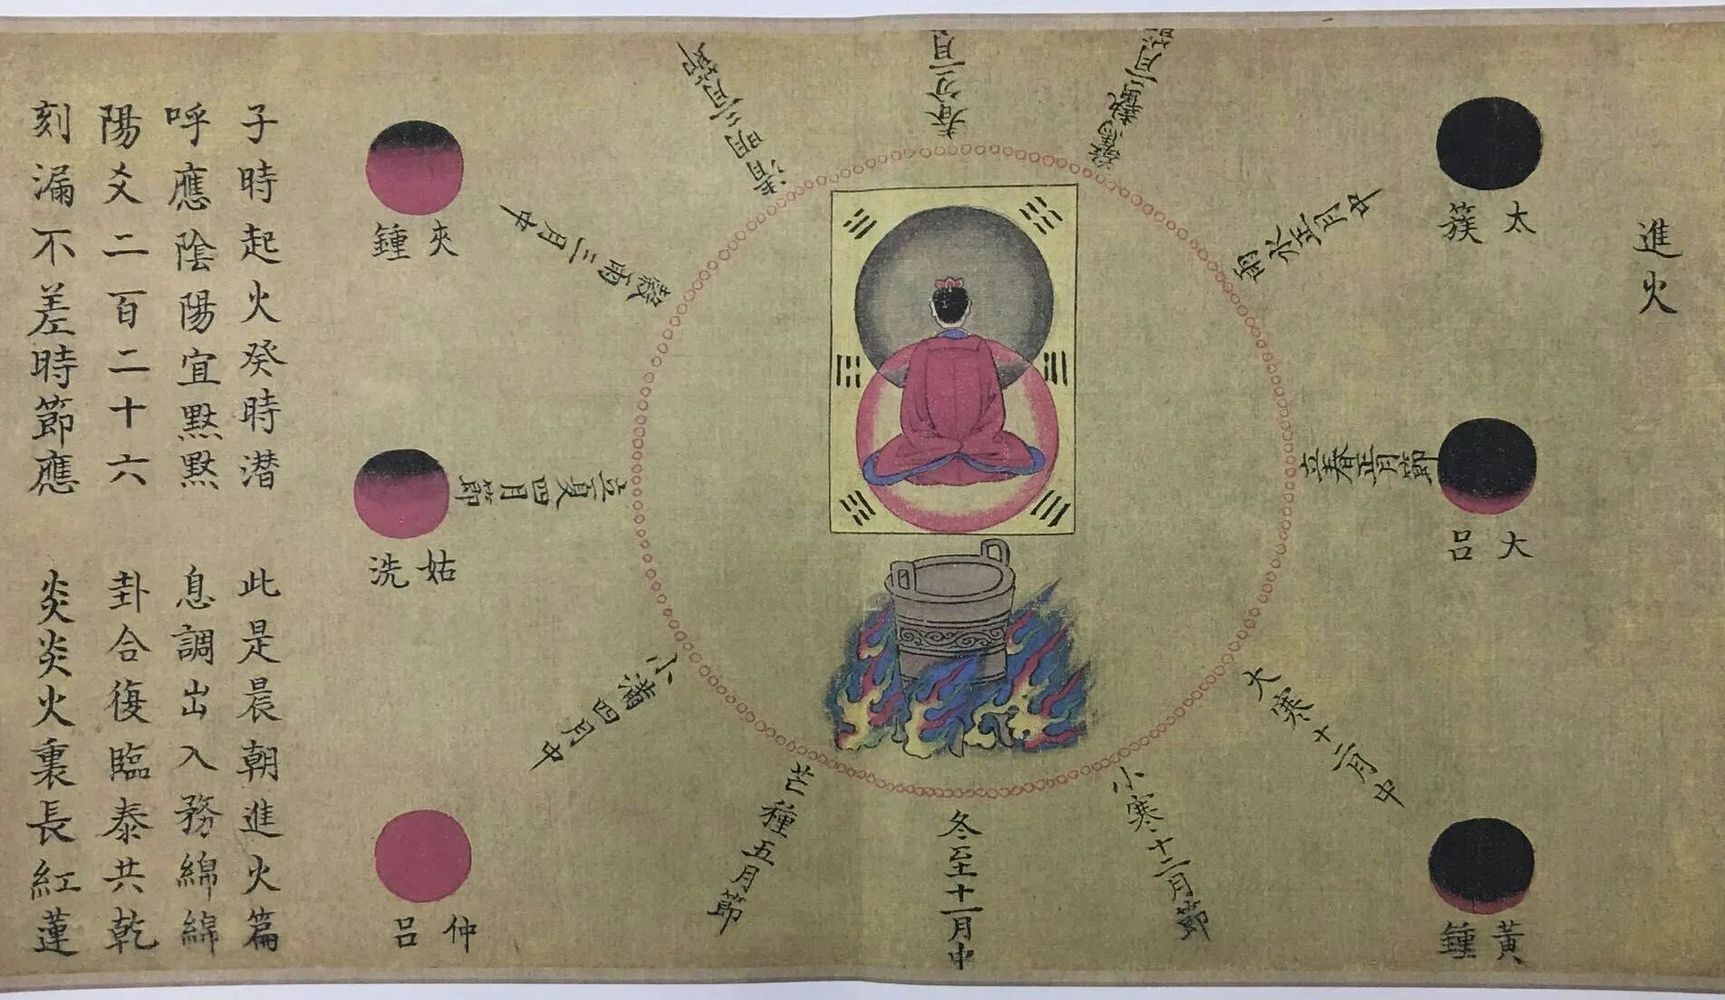 進火
太簇
大呂
黃鍾
春分二月
驚蟄二月節
雨水正月中
立春正月節
大寒十二月中
小寒十二月節
冬至十一月中
芒種五月節
小滿四月中
立夏四月節
穀雨三月中
清明三月節
夾鍾
姑洗
仲呂
子時起火癸時潜 此是晨朝進火篇
呼應陰陽宜黙黙 息調出入務綿綿
陽爻二百二十六 卦合復臨泰共乾
刻漏不差時節應 炎炎火裏長紅蓮